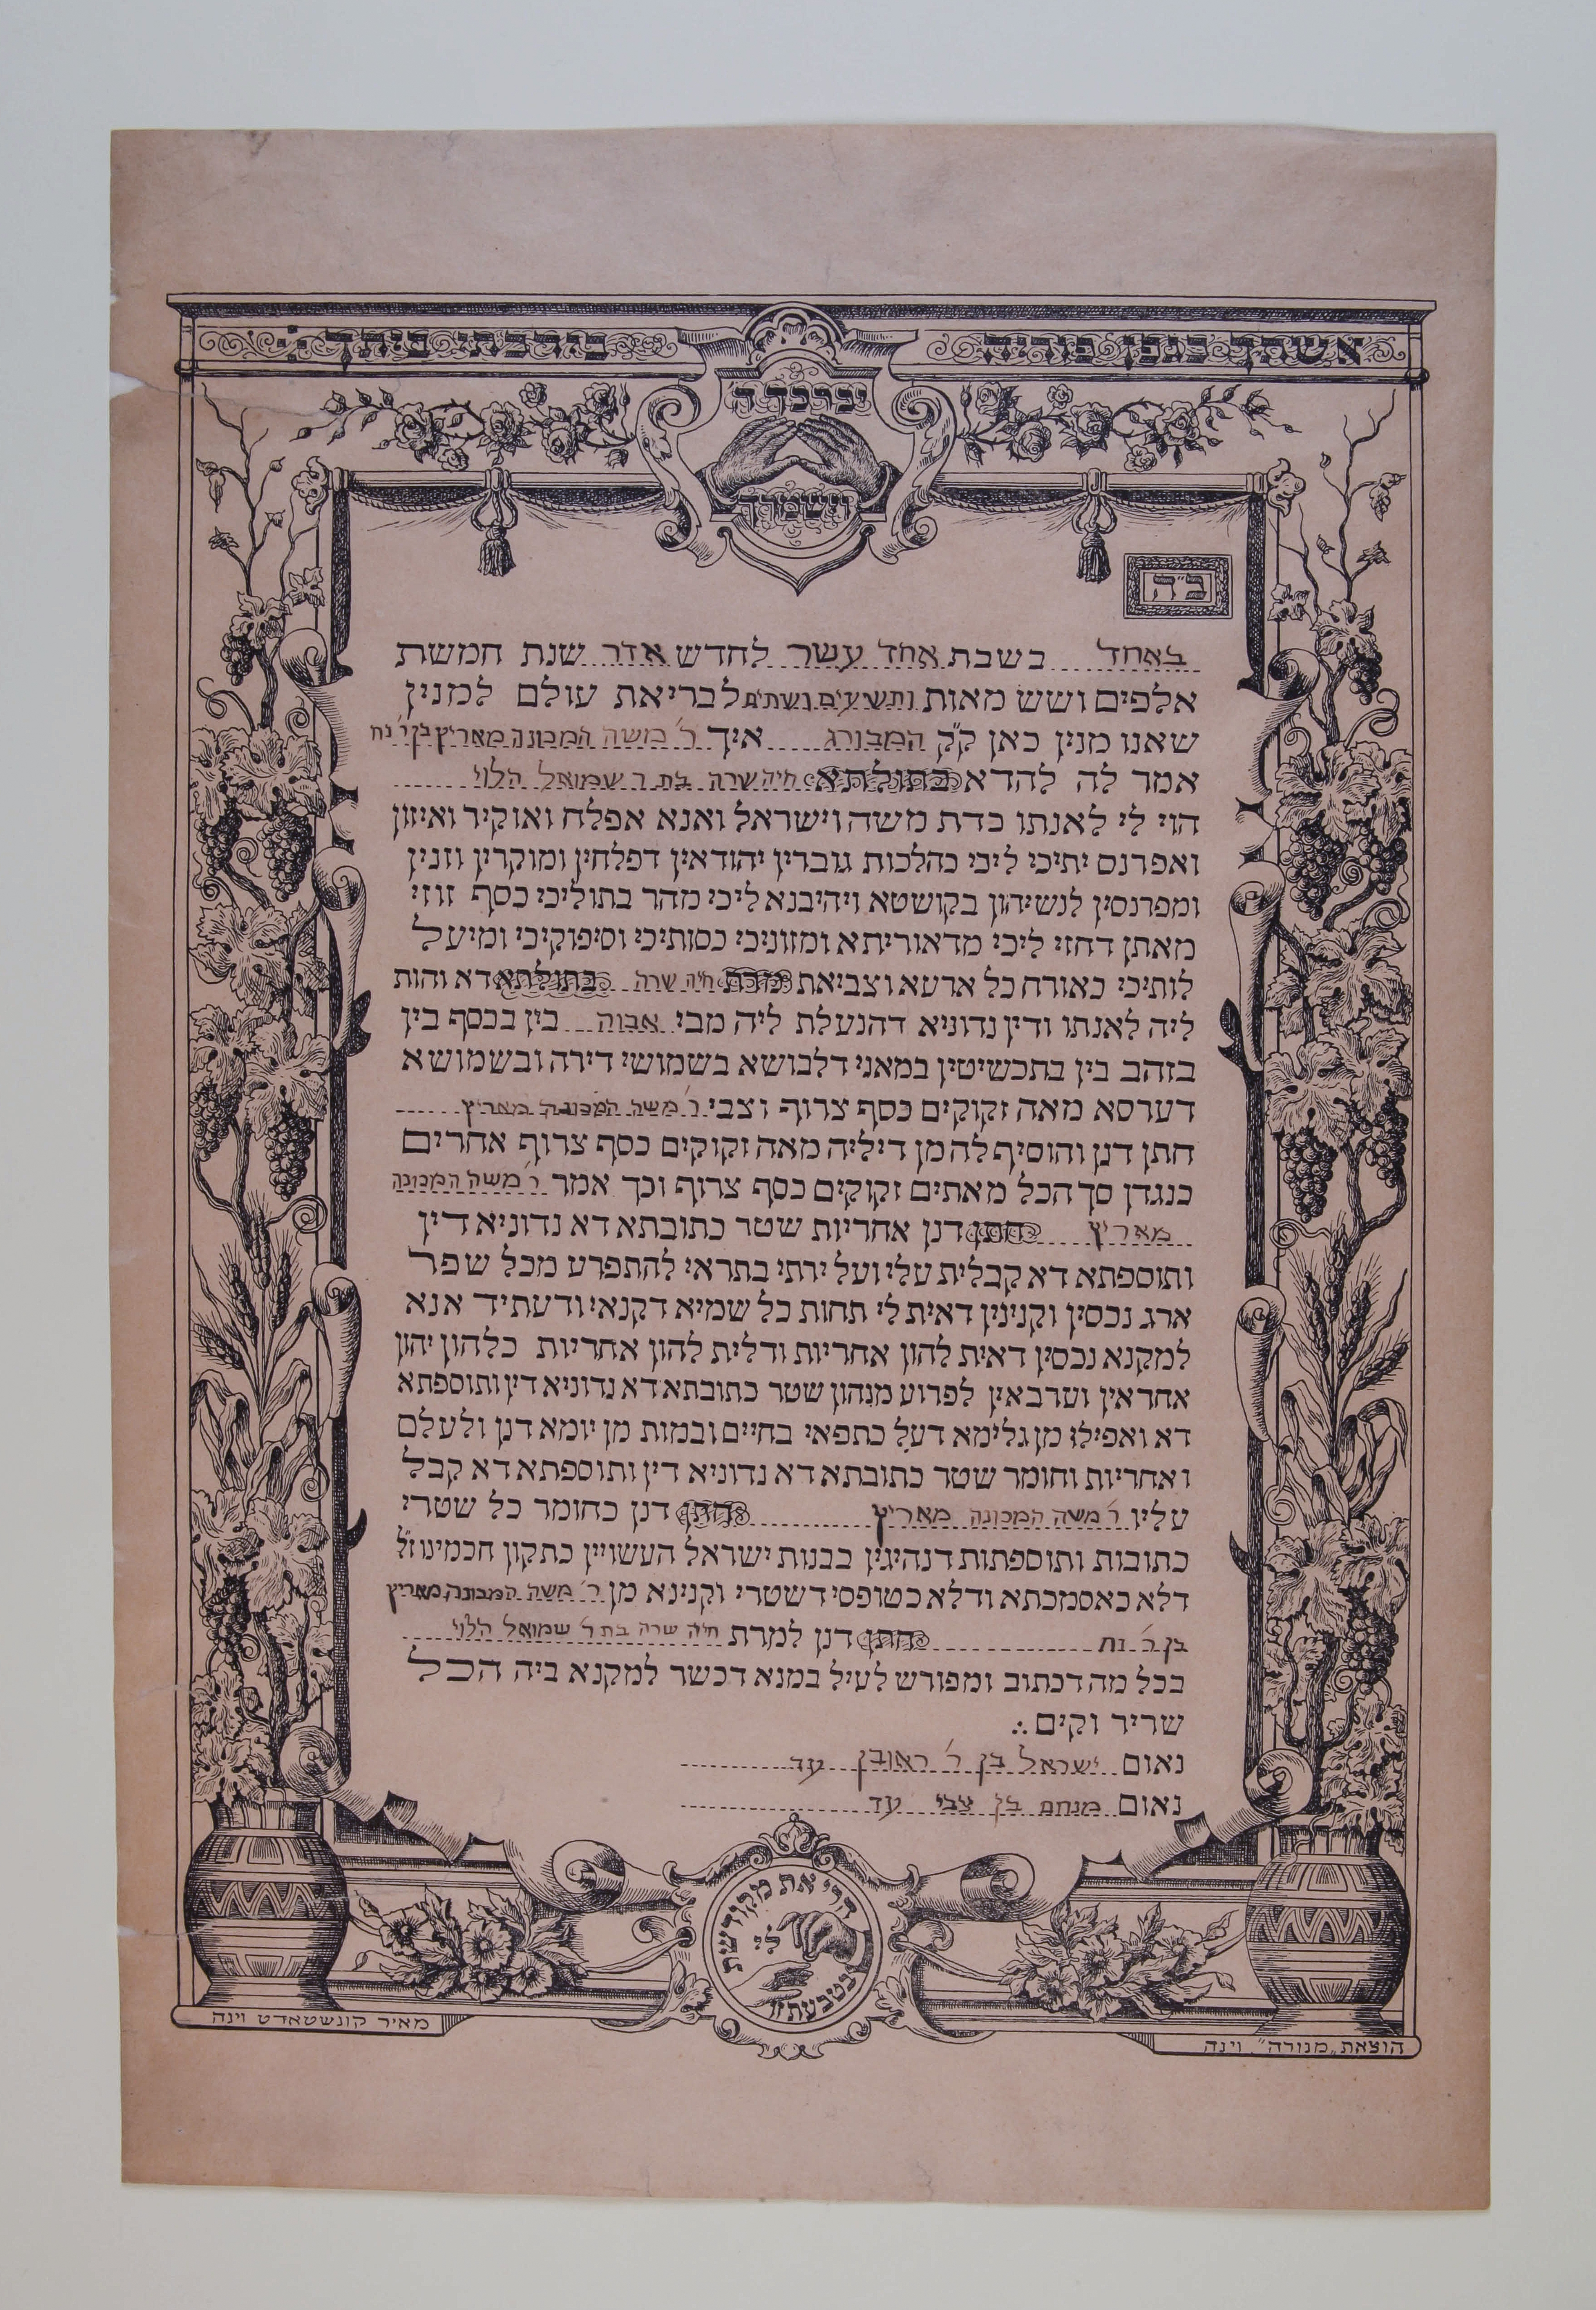 אשתך כגפן פוריה בירכתי ביתך
יברכך ה'
וישמרך
ב״ה
באחד בשבת אחד עשר לחדש אדר שנת חמשת
אלפים ושש מאות ותשעים ושתים לבריאת עולם למנין
שאנו מנין כאן ק״ק המבורג איך ר׳ משה המכונה מאריץ בן ר׳ נח
אמר לה להדא בתולתא חיה שרה בת ר׳ שמואל הלוי
הוי לי לאנתו כדת משה וישראל ואנא אפלח ואוקיר ואיזון
ואפרנס יתיכי ליכי כהלכות גוברין יהודאין דפלחין ומוקרין וזנין
ומפרנסין לנשיהון בקושטא ויהיבנא ליכי מהר בתוליכי כסף זוזי
מאתן דחזי ליכי מדאוריתא ומזוניכי כסותיכי וסיפוקיכי ומיעל
לותיכי כאורח כל ארעא וצביאת מרת חיה שרה בתולתא דא והות
ליה לאנתו ודין נדוניא דהנעלת ליה מבי אבוה בין בכסף בין
בזהב בין בתכשיטין במאני דלבושא בשמושי דירה ובשמושא
דערסא מאה זקוקים כסף צרוף וצבי ר׳ משה המכונה מאריץ
חתן דנן והוסיף לה מן דיליה מאה זקוקים כסף צרוף אחרים
כנגדן סך הכל מאתים זקוקים כסף צרוף וכך אמר ר׳ משה המכונה
מאריץ חתן דנן אחריות שטר כתובתא דא נדוניא דין
ותוספתא דא קבלית עלי ועל ירתי בתראי להתפרע מכל שפר
ארג נכסין וקנינין דאית לי תחות כל שמיא דקנאי ודעתיד אנא
למקנא נכסין דאית להון אחריות ודלית להון אחריות כלהון יהון
אחראין וערבאין לפרוע מנהון שטר כתובתא דא נדוניא דין ותוספתא
דא ואפילו מן גלימא דעל כתפאי בחיים ובמות מן יומא דנן ולעלם
ואחריות וחומר שטר כתובתא דא נדוניא דין ותוספתא דא קבל
עליו ר׳ משה המכונה מאריץ חתן דנן כחומר כל שטרי
כתובות ותוספתות דנהיגין בבנות ישראל העשויין כתקון חכמינו ז״ל
דלא כאסמכתא ודלא כטופסי דשטרי וקנינא מן ר׳ משה המכונה מאריץ
בן ר׳ נח חתן דנן למרת חיה שרה בת ר׳ שמואל הלוי
בכל מה דכתוב ומפורש לעיל במנא דכשר למקנא ביה הכל
שריר וקים
נאום ישראל בן ר׳ ראובן עד
נאום מנחם בן צבי עד
הרי את מקודשת
לי
בטבעת זו
הוצאת „מנורה״ וינה
מאיר קונשטאדט וינה